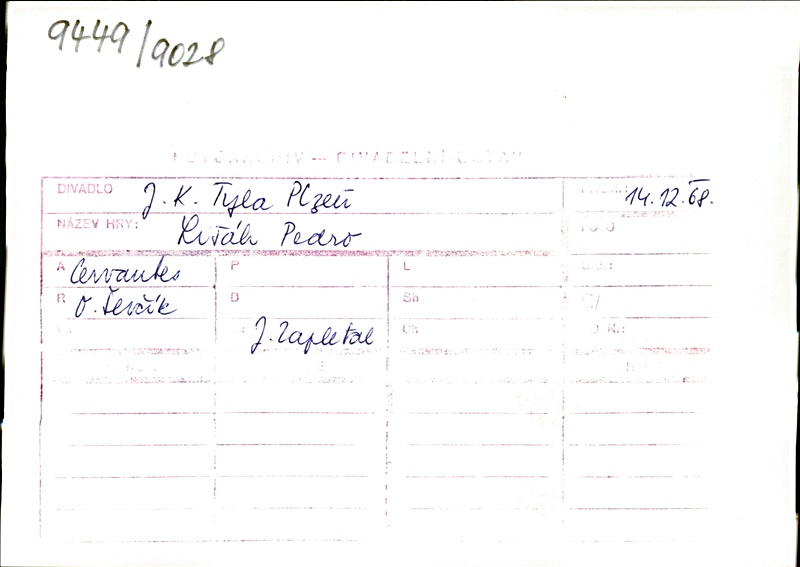 9449/9028
FOTOARCHIV — DIVADELNÍ ÚSTAV
DIVADLO J. K. Tyla Plzeň 14.12.68.
NÁZEV HRY: Lišák Pedro
A Cervantes P L
R O. Ševčík D Sh
J. Zapletal Ch